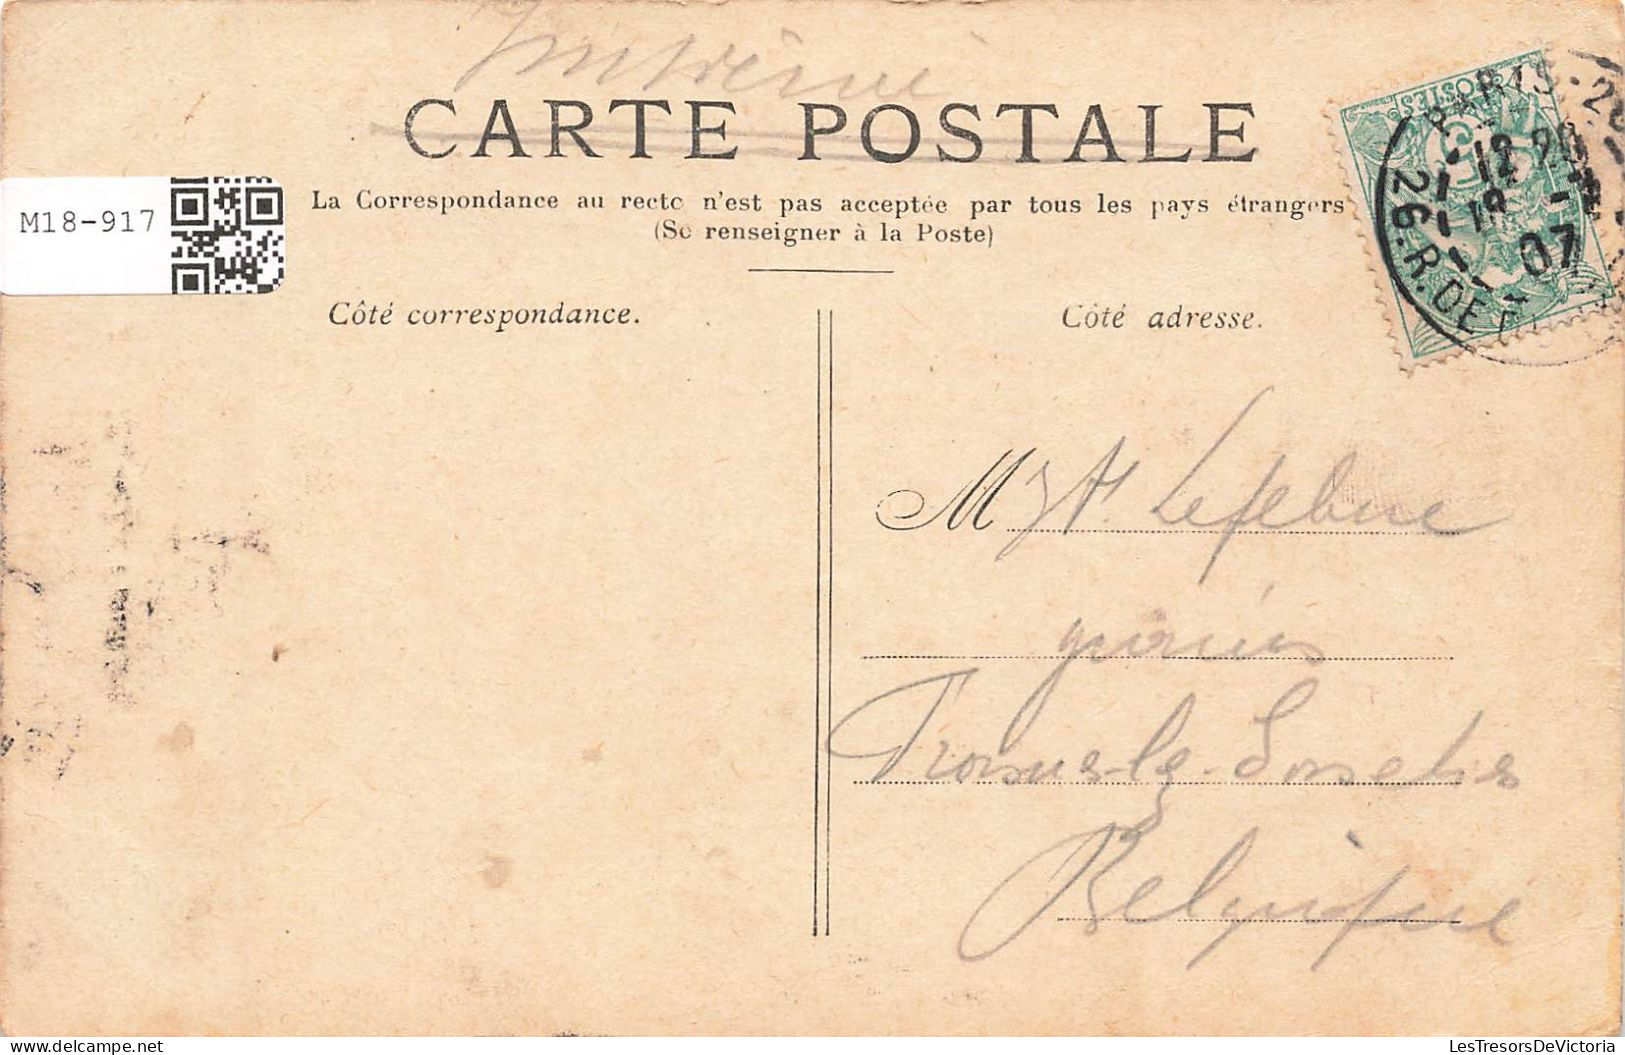 Imprimé
CARTE POSTALE
M18-917
La Correspondance au recto n'est pas acceptée par tous les pays étrangers
(Se renseigner à la Poste)
Côté correspondance.
Côté adresse.
POSTES
PARIS - 26
12 20
19
07
26. R. DE
M A. Lefebvre
Belgique
LesTresorsDeVictoria.com